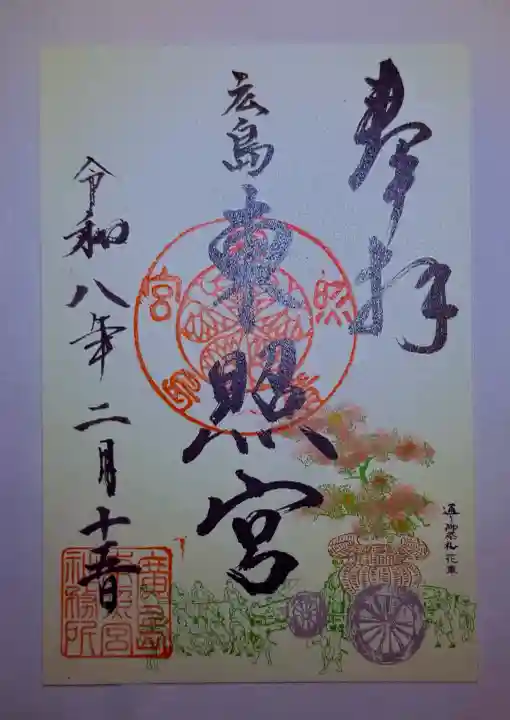 奉拝
広島
東照宮
令和八年二月十二日
通り御祭礼花車
廣島
東照宮
社務所